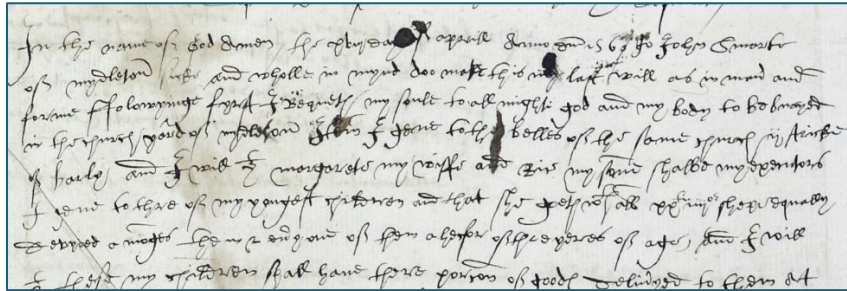 In the name of god Amen the day of aprill Anno dni 156 I John Smarte
of mydleton sicke and wholle in mynd doo make this my last will as in maner and
forme ffolowynge fyrst I Bequeth my soule to all mighti god and my body to be buryed
in the church yard of mydleton Itm I geve to the belles of the same church ij stricke
of barly and I will yt margarete my wiffe and my sonne shalbe my executors
I geve to thre of my yongest children and that she geth wth all xx shepe equally
devyded a monges them & evy one of them a hecfor of thre yeres of age, and I will
yt these my children shall have there porcon of goods delivyed to them at